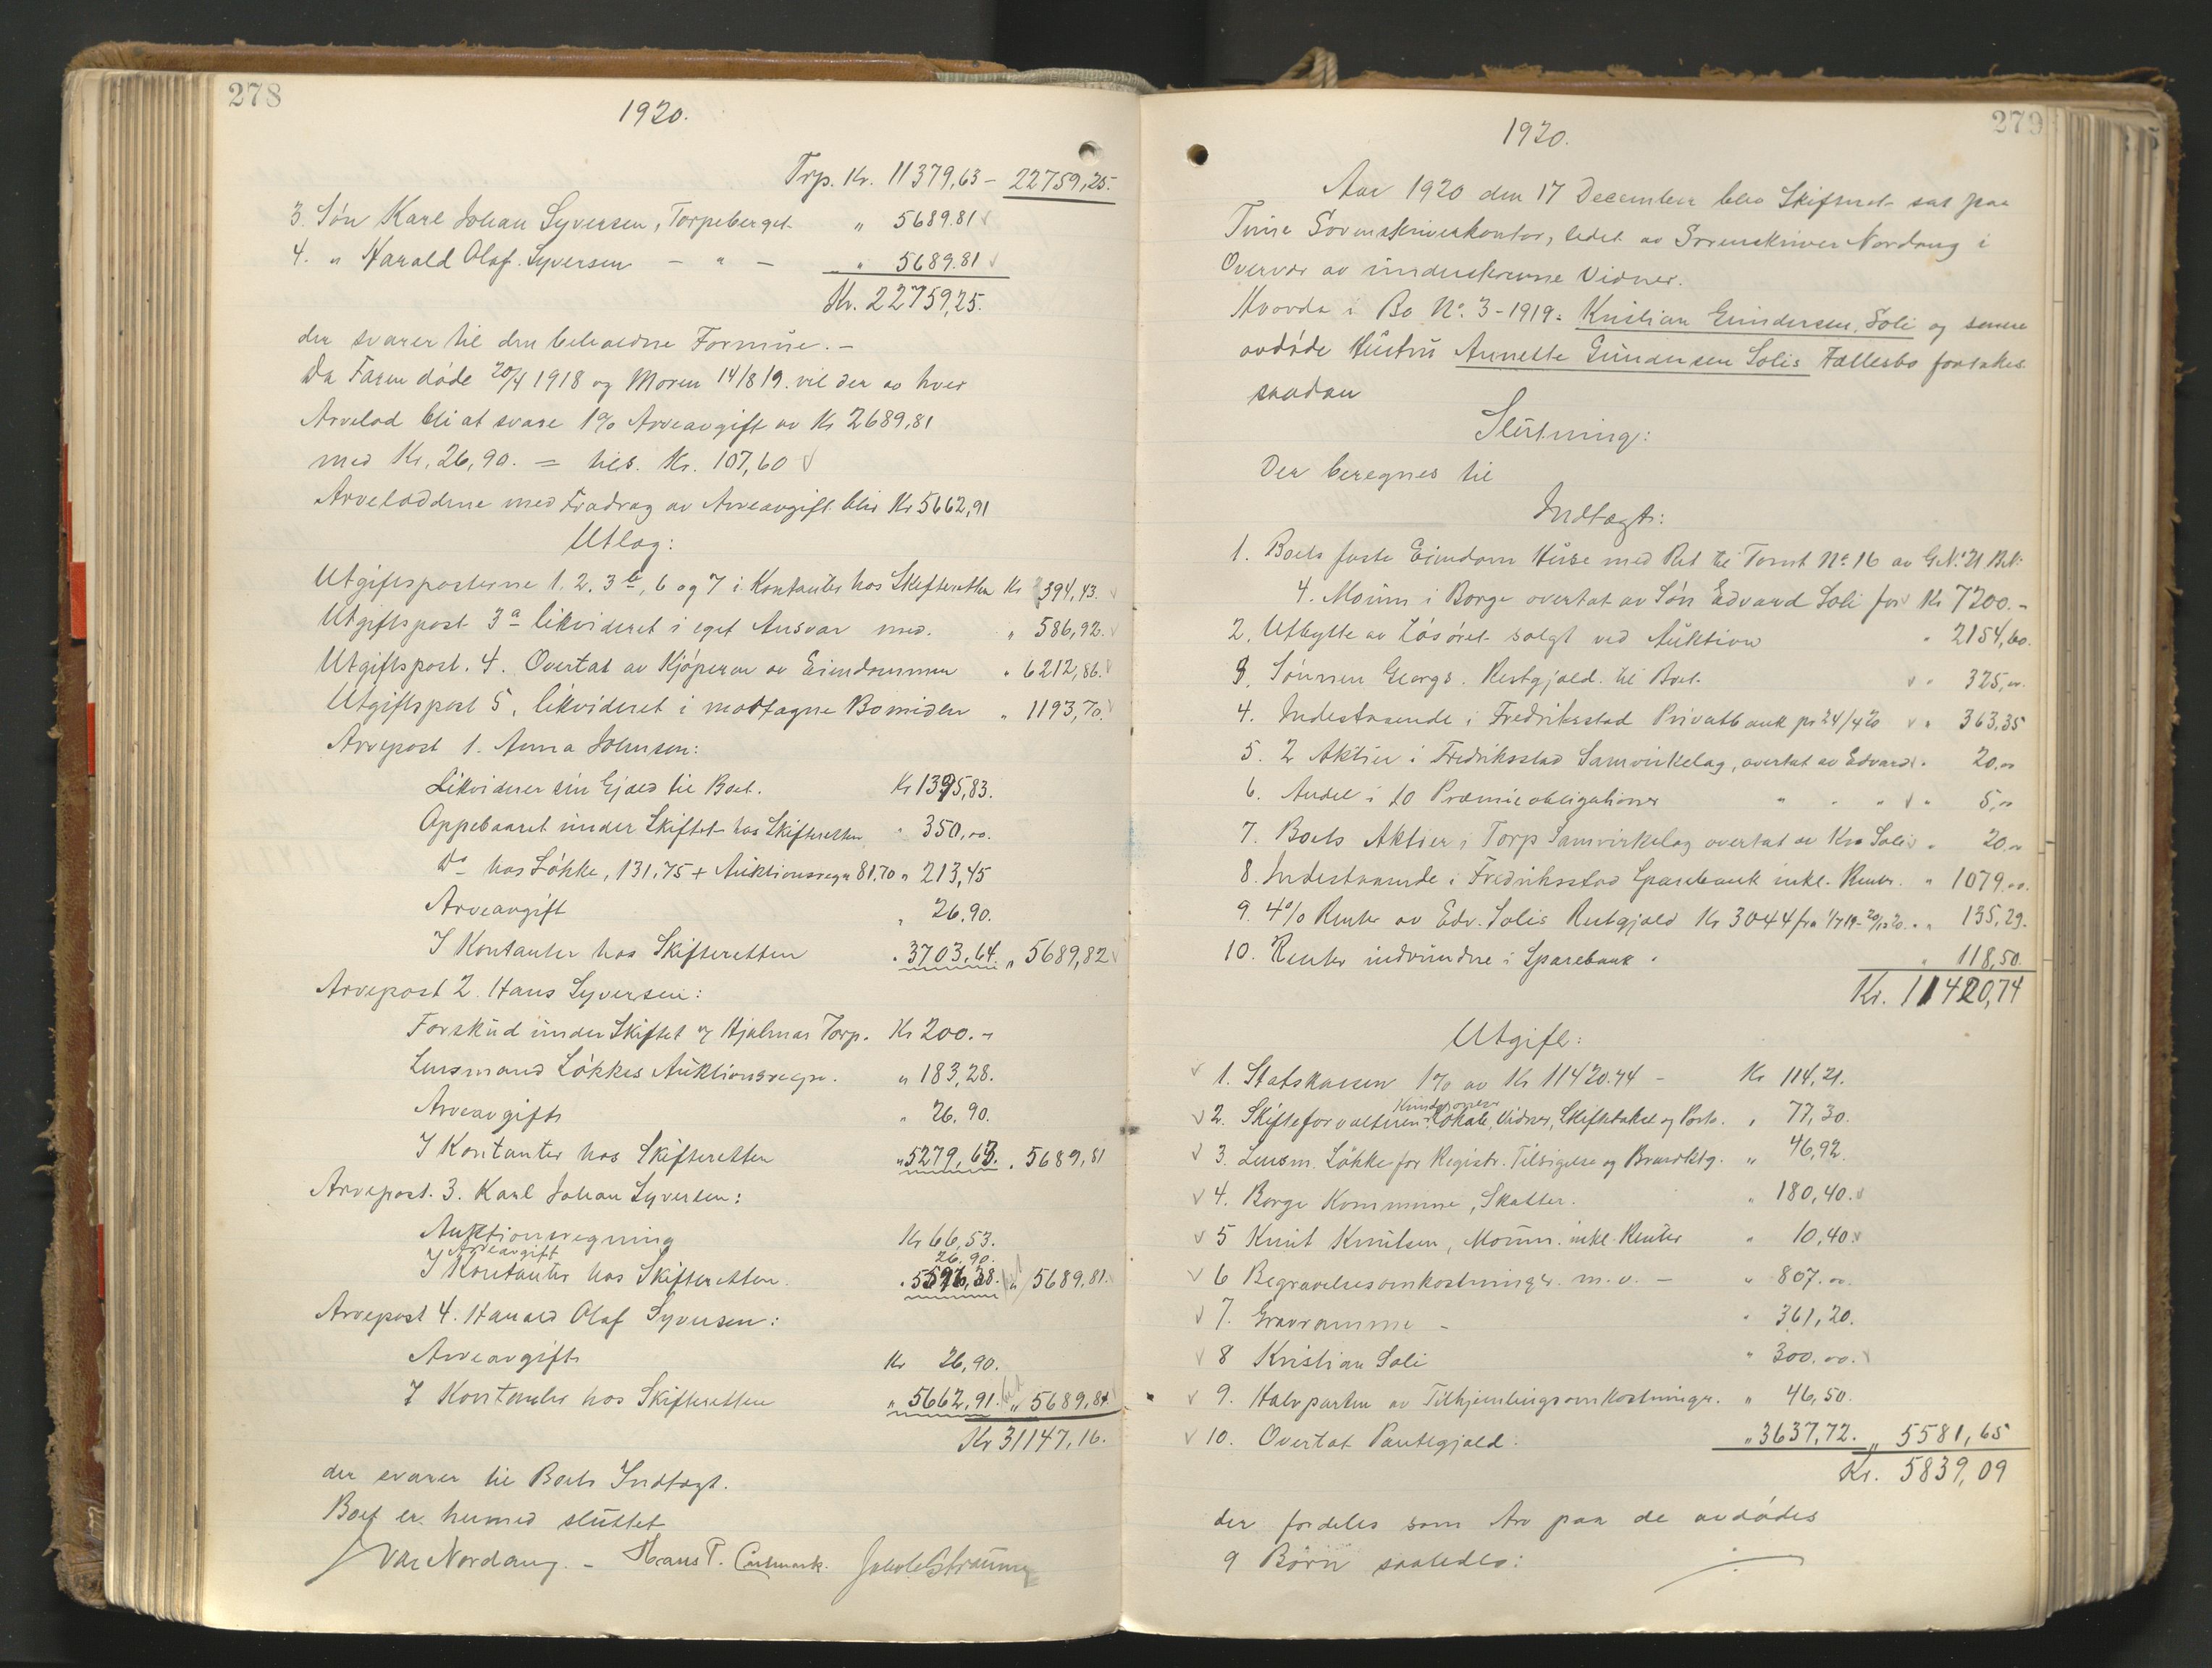 278
1920.
Trp. Kr. 11379,63 - 22759,25.
3. Søn Karl Johan Syversen, Torpeberget " 5689.81
4. " Harald Olaf Syversen - " - " 5689.81
Kr. 22759,25.
der svarer til den beholdne Formue. -
Da Faren døde 20/4 1918 og Moren 14/8 19. vil der av hver
Arvelod bli at svare 1% Arveavgift av Kr 2689,81
med Kr. 26,90. = tils. Kr. 107,60
Arveloddene med Fradrag av Arveavgift blir Kr 5662,91
Utlæg:
Utgiftsposterne 1. 2. 3 b, 6 og 7 i Kontanter hos Skifteretten Kr 394,43.
Utgiftspost 3 a likvideret i eget Ansvar med. " 586,92.
Utgiftspost. 4. Overtat av Kjøperen av Eiendommen " 6212,86.
Utgiftspost 5, likvideret i mottagne Bomidler " 1193,70.
Arvepost 1. Anna Johnsen:
Likviderer sin Gjæld til Boet. Kr 1395,83.
Oppebaaret under Skiftet hos Skifteretten " 350,00.
Do hos Løkke, 131,75 + Auktionsregn 81.70 " 213,45
Arveavgift " 26.90.
I Kontanter hos Skifteretten " 3703,64. " 5689,82
Arvepost 2. Hans Syversen:
Forskud under Skiftet v/ Hjalmar Torp. Kr 200.-
Lensmand Løkkes Auktionsregn. " 183,28.
Arveavgift " 26.90.
I Kontanter hos Skifteretten " 5279,63. " 5689,81
Arvepost. 3. Karl Johan Syversen:
Auktionsregning Kr 66,53.
Arveavgift 26.90.
I Kontanter hos Skifteretten. " 5596,38. " 5689,81.
Arvepost 4. Harald Olaf Syversen:
Arveavgift Kr 26,90.
I Kontanter hos Skifteretten " 5662,91. " 5689,81
Kr 31147,16.
der svarer til Boets Indtægt.
Boet er hermed sluttet
Nordang. - Hans T.
279
1920.
Aar 1920 den 17 December blev Skifteret sat paa
Tune Sorenskriverkontor, ledet av Sorenskriver Nordang i
Overvær av underskrevne Vidner.
Hvorda i Bo No. 3-1919: Kristian Gundersen Soli og senere
avdøde Hustru Annette Gundersen Solis Fællesbo foretokes
saadan
Slutning:
Der beregnes til
Indtægt:
1. Boets faste Eiendom Huse med Ret til Tomt No 16 av G.N. 21 B.N.
4. Moum i Borge overtat av Søn Edvard Soli for Kr 7200.-
2. Utbytte av Løsøret solgt ved Auktion " 2154,60.
3. Sønnen Georgs. Restgjæld til Boet. " 325,00.
4. Indestaaende i Fredriksstad Privatbank pr 24/4 20 " 363,35
5. 2 Aktier i Fredriksstad Samvirkelag, overtat av Edvard " 20.00
6. Andel i 10 Præmieobligationer " " " " 5,00
7. Boets Aktier i Torp Samvirkelag overtat av Kr. Soli " 20,00
8. Indestaaende i Fredriksstad Sparebank inkl. Renter. " 1079.00.
9. 4% Renter av Edv. Solis Restgjæld Kr 3044 fra 1/7 19 - 20/12 20. " 135,29.
10. Renter indvundne i Sparebank. " 118,50.
Kr. 11420,74
Utgift:
1. Statskassen 1% av Kr 11420.74 - Kr 114,21.
2. Skifteforvalteren Kundgjørelse Lokale, Vidner, Skiftetakst og Porto. " 77,30.
3. Lensm. Løkke for Registr. Tilsigelse og " 46,92.
4. Borge Kommune, Skatter. " 180,40.
5 Knut Knutsen, Moum. inkl. Renter " 10,40
6 Begravelsesomkostninger. m.v. - " 807.00.
7. Gravramme - " 361,20.
8 Kristian Soli " 300.00.
9. Halvparten av Tilhjemlingsomkostninger. " 46,50.
10. Overtat Pantegjæld. " 3637,72. " 5581,65
Kr. 5839,09
der fordeles som Arv paa de avdødes
9 Børn saaledes: